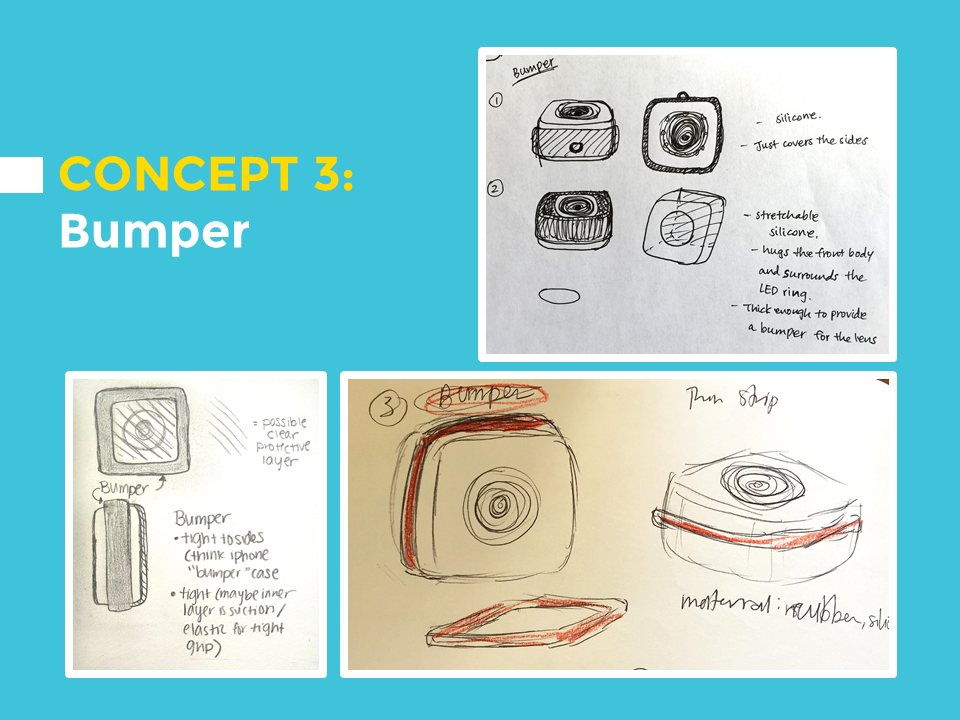 CONCEPT 3:
Bumper
Bumper
1
- silicone.
- Just covers the sides
2
- stretchable
silicone.
- hugs the front body
and surrounds the
LED ring.
- Thick enough to provide
a bumper for the lens
= possible
clear
protective
layer
Bumper
Bumper
• tight to sides
(think iphone
"bumper" case
• tight (maybe inner
layer is suction/
elastic for tight
grip)
3 Bumper
Thin strip
material: rubber, sili